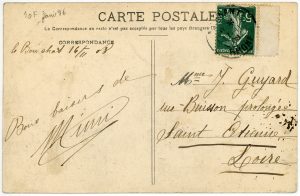 10F Janv 86
CARTE POSTALE
La Correspondance au recto n'est pas acceptée par tous les pays étrangers
CORRESPONDANCE
le 16/ 08
Bons baisers de
Mimi
Mme J. Guyard
rue Buisson prolongée
Saint Etienne
Loire